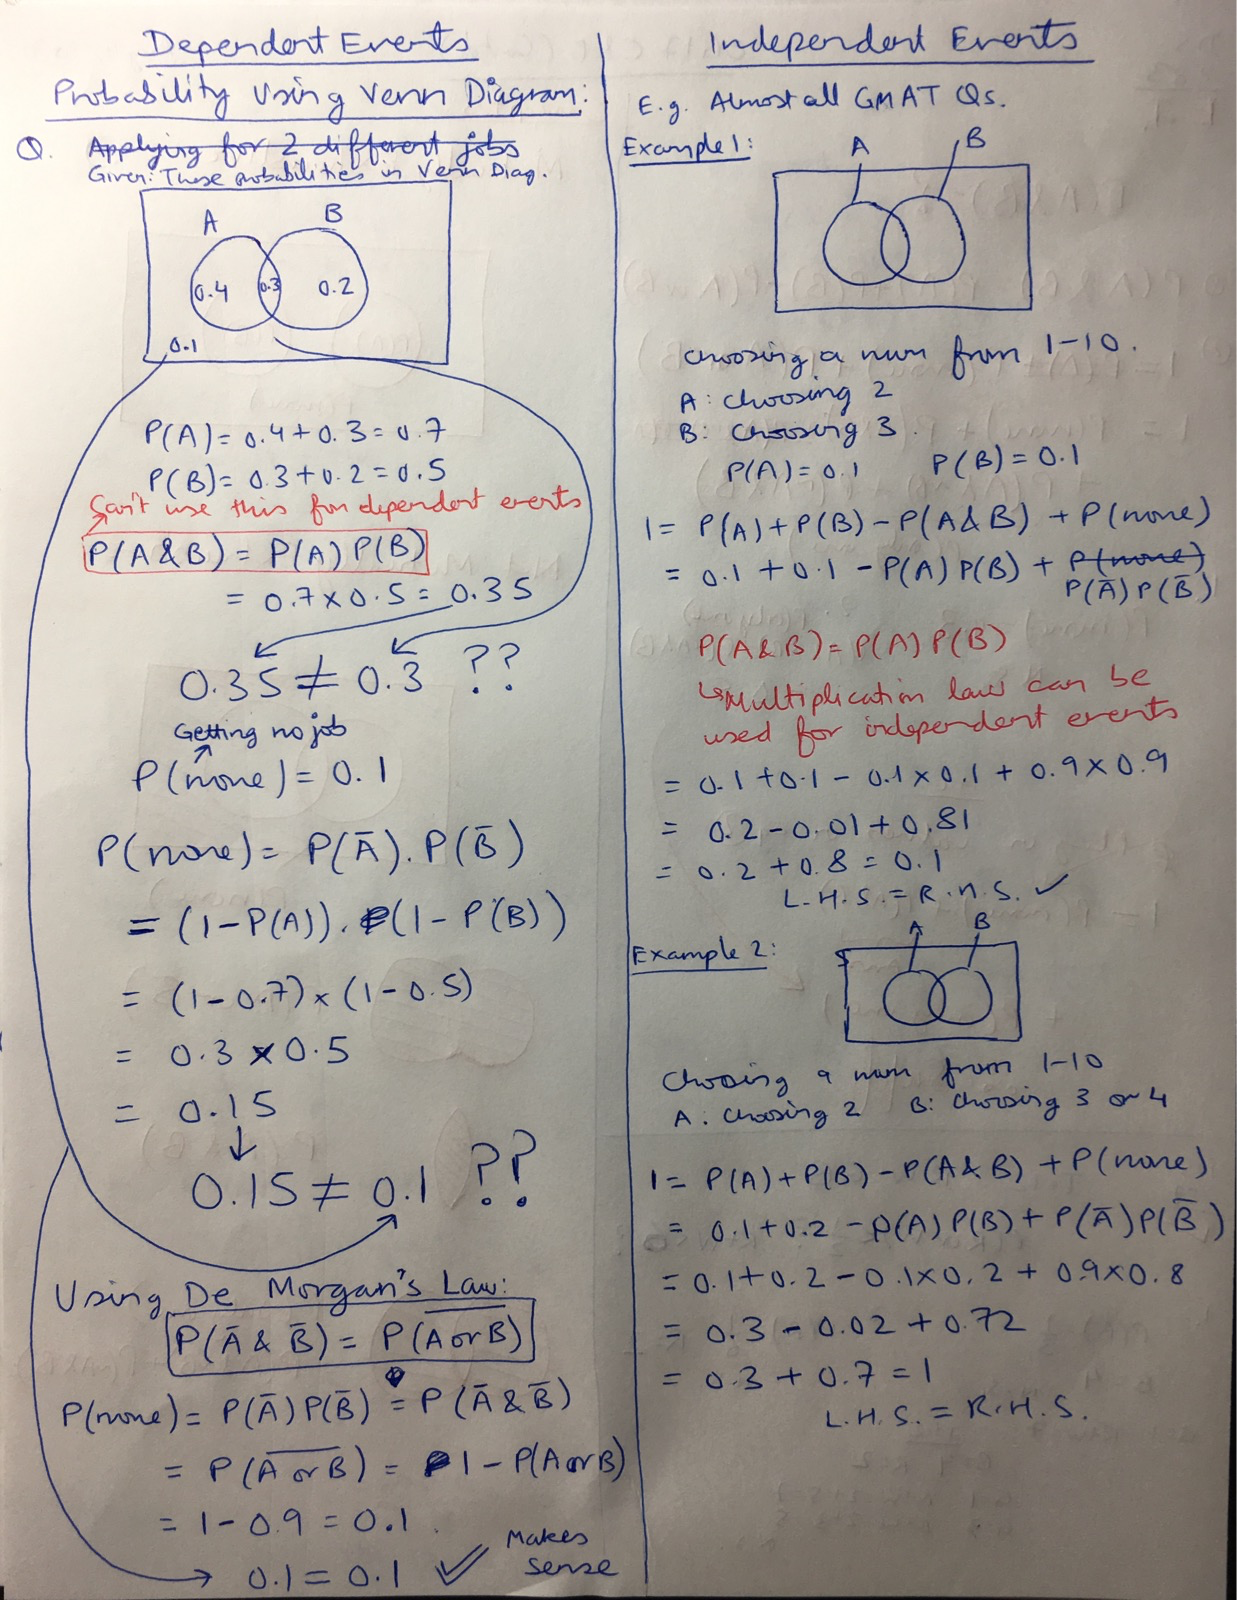 Dependent Events
Probability Using Venn Diagram:
Q. Applying for 2 different jobs
Given: These probabilities in Venn Diag.
A B
0.4 0.3 0.2
0.1
P(A) = 0.4 + 0.3 = 0.7
P(B) = 0.3 + 0.2 = 0.5
Can't use this for dependent events
P(A & B) = P(A) P(B)
= 0.7 x 0.5 = 0.35
0.35 ≠ 0.3 ??
Getting no job
P(none) = 0.1
P(none) = P(Ā). P(B̄)
= (1 - P(A)). (1 - P(B))
= (1 - 0.7) x (1 - 0.5)
= 0.3 x 0.5
= 0.15
↓
0.15 ≠ 0.1 ??
Using De Morgan's Law:
P(Ā & B̄) = P(A̅ ̅o̅r̅ ̅B̅)
P(none) = P(Ā) P(B̄) = P(Ā & B̄)
= P(A̅ ̅o̅r̅ ̅B̅) = 1 - P(A or B)
= 1 - 0.9 = 0.1
0.1 = 0.1 ✓ Makes
sense
Independent Events
E.g. Almost all GMAT Qs.
Example 1:
A B
choosing a num from 1-10.
A: choosing 2
B: choosing 3.
P(A) = 0.1 P(B) = 0.1
1 = P(A) + P(B) - P(A & B) + P(none)
= 0.1 + 0.1 - P(A) P(B) + P(none)
P(Ā) P(B̄)
P(A & B) = P(A) P(B)
↳ Multiplication law can be
used for independent events
= 0.1 + 0.1 - 0.1 x 0.1 + 0.9 x 0.9
= 0.2 - 0.01 + 0.81
= 0.2 + 0.8 = 0.1
L.H.S. = R.H.S. ✓
Example 2:
A B
S
Choosing a num from 1-10
A: choosing 2 B: choosing 3 or 4
1 = P(A) + P(B) - P(A & B) + P(none)
= 0.1 + 0.2 - P(A) P(B) + P(Ā) P(B̄)
= 0.1 + 0.2 - 0.1 x 0.2 + 0.9 x 0.8
= 0.3 - 0.02 + 0.72
= 0.3 + 0.7 = 1
L.H.S. = R.H.S.